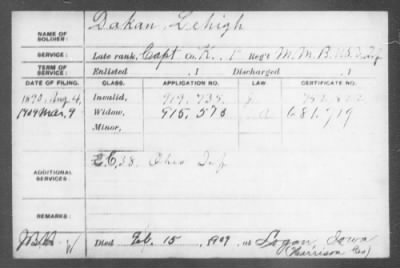 NAME OF SOLDIER: Dakan, Lehigh
SERVICE: Late rank, Capt Co. K., 1" Reg't M. M. B. U.S. Inf
TERM OF SERVICE: Enlisted , 1 Discharged , 1
DATE OF FILING. CLASS. APPLICATION NO. LAW CERTIFICATE NO.
1890, Aug 4, Invalid, 919,735
1909 Mar, 9 Widow, 915,573 681,719
Minor,
ADDITIONAL SERVICES: E, 58, Ohio Inf
REMARKS:
Died Feb. 15, 1909, at Logan, Iowa
(Harrison Co)